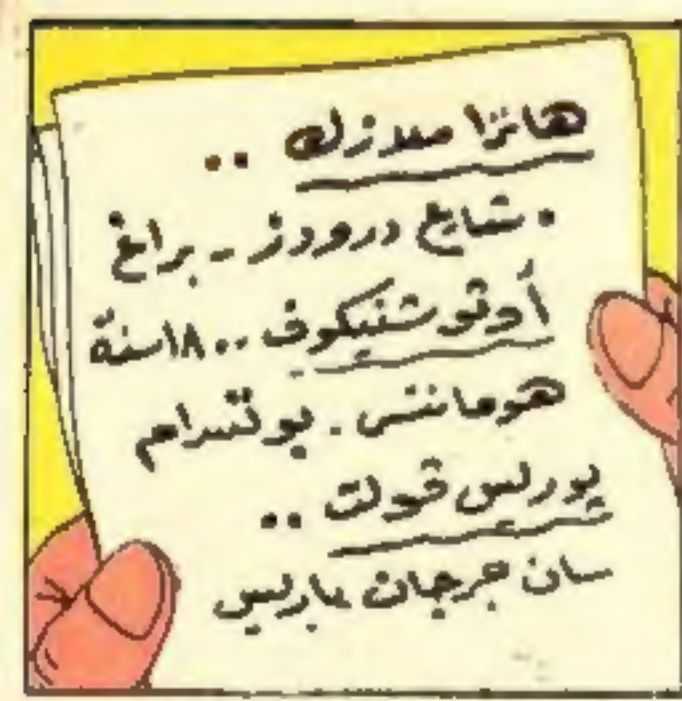 هانزا مدزك ..
. شايغ درودز - براغ
أوتوشنيكوف .. ١٨ سنة
هوماننس . بوتسدام
يورليس قولت ..
سان جرجان باريس